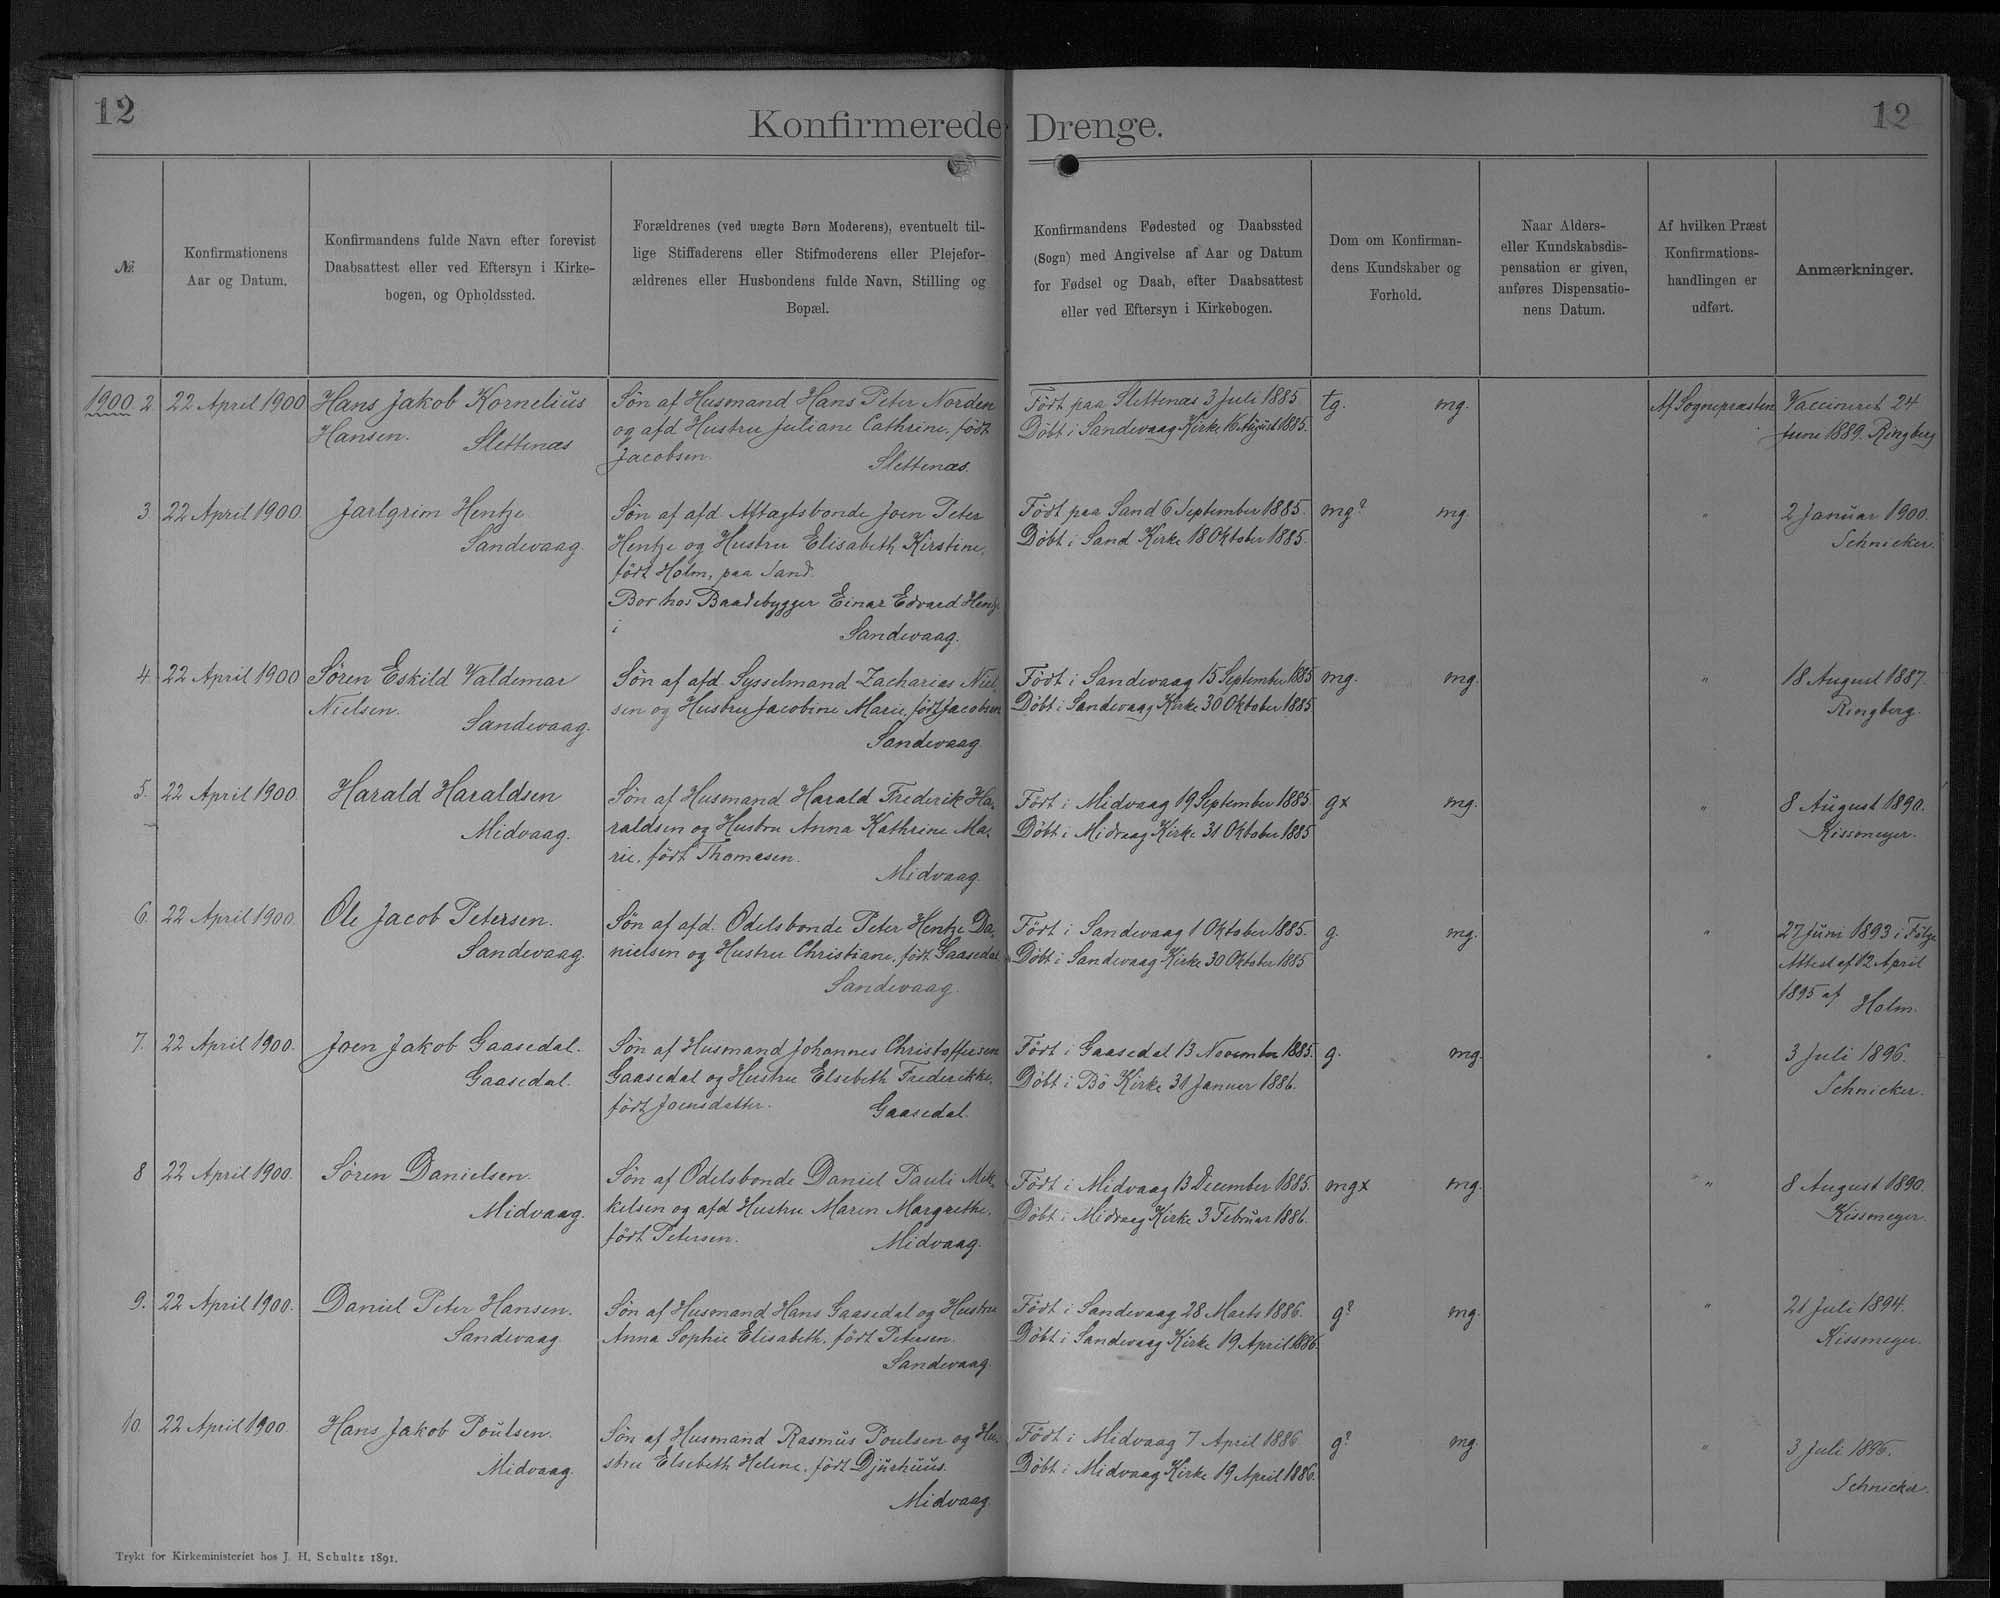 12
Konfirmerede Drenge.
12
№
Konfirmationens
Aar og Datum.
Konfirmandens fulde Navn efter forevist
Daabsattest eller ved Eftersyn i Kirke-
bogen, og Opholdssted.
Forældrenes (ved uægte Børn Moderens), eventuelt til-
lige Stiffaderens eller Stifmoderens eller Plejefor-
ældrenes eller Husbondens fulde Navn, Stilling og
Bopæl.
Konfirmandens Fødested og Daabssted
(Sogn) med Angivelse af Aar og Datum
for Fødsel og Daab, efter Daabsattest
eller ved Eftersyn i Kirkebogen.
Dom om Konfirman-
dens Kundskaber og
Forhold.
Naar Alders-
eller Kundskabsdis-
pensation er given,
anføres Dispensatio-
nens Datum.
Af hvilken Præst
Konfirmations-
handlingen er
udført.
Anmærkninger.
1900. 2
22 April 1900
Hans Jakob Kornelius
Hansen.
Slettenæs
Søn af Husmand Hans Peter Norden
og afd Hustru Juliane Cathrine, født
Jacobsen.
Slettenæs.
Født paa Slettenæs 3 Juli 1885
Døbt i Sandevaag Kirke 16 August 1885.
tg.
mg.
Af Sognepræsten
Vaccineret 24
Juni 1889. Ringberg
3
22 April 1900
Jarlgrim Hentze
Sandevaag.
Søn af afd. Aftagtsbonde Joen Peter
Hentze og Hustru Elisabeth Kirstine,
født Holm, paa Sand.
Bor hos Baadebygger Einar Edvard Hentze
i
Sandevaag.
Født paa Sand 6 September 1885.
Døbt i Sand Kirke 18 Oktober 1885.
mg?
mg
"
2 Januar 1900.
Schnicker.
4
22 April 1900
Søren Eskild Valdemar
Nielsen.
Sandevaag.
Søn af afd. Sysselmand Zacharias Niel-
sen og Hustru Jacobine Marie, født Jacobsen
Sandevaag.
Født i Sandevaag 15 September 1885
Døbt i Sandevaag Kirke 30 Oktober 1885
mg.
mg.
"
18 August 1887.
Ringberg.
5.
22 April 1900.
Harald Haraldsen
Midvaag.
Søn af Husmand Harald Frederik Ha-
raldsen og Hustru Anna Kathrine Ma-
rie, født Thomasen.
Midvaag.
Født i Midvaag 19 September 1885.
Døbt i Midvaag Kirke 31 Oktober 1885
gx
mg.
"
8 August 1890.
Kissmeyer.
6.
22 April 1900.
Ole Jacob Petersen.
Sandevaag.
Søn af afd. Odelsbonde Peter Hentze Da-
nielsen og Hustru Christiane, født Gaasedal
Sandevaag.
Født i Sandevaag 1 Oktober 1885.
Døbt i Sandevaag Kirke 30 Oktober 1885
g.
mg.
"
27 Juni 1893 i Følge
Attest af 12 April
1895 af
Holm.
7.
22 April 1900.
Joen Jakob Gaasedal.
Gaasedal.
Søn af Husmand Johannes Christoffersen
Gaasedal og Hustru Elsebeth Frederikke,
født Joensdatter.
Gaasedal.
Født i Gaasedal 13 November 1885.
Døbt i Bø Kirke 31 Januar 1886.
g.
mg.
"
3 Juli 1896.
Schnicker.
8
22 April 1900.
Søren Danielsen.
Midvaag.
Søn af Odelsbonde Daniel Pauli Mik-
kelsen og afd Hustru Maren Margrethe,
født Petersen.
Midvaag.
Født i Midvaag 13 December 1885.
Døbt i Midvaag Kirke 3 Februar 1886.
mgx
mg.
"
8 August 1890.
Kissmeyer.
9.
22 April 1900.
Daniel Peter Hansen.
Sandevaag
Søn af Husmand Hans Gaasedal og Hustru
Anna Sophie Elisabeth, født Petersen.
Sandevaag.
Født i Sandevaag 28 Marts 1886.
Døbt i Sandevaag Kirke 19 April 1886.
g?
mg
"
21 Juli 1894.
Kissmeyer.
10.
22 April 1900.
Hans Jakob Poulsen.
Midvaag.
Søn af Husmand Rasmus Poulsen og Hu-
stru Elsebeth Helene, født Djurhuus.
Midvaag
Født i Midvaag 7 April 1886
Døbt i Midvaag Kirke 19 April 1886.
g?
mg.
"
3 Juli 1896.
Schnicker.
Trykt for Kirkeministeriet hos J. H. Schultz 1891.